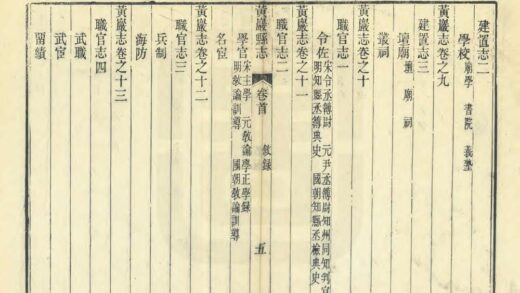 建置志二
學校 廟學 書院 義塾
黃巖志卷之九
建置志三
壇廟 壇 廟 祠
叢祠
黃巖志卷之十
職官志一
令佐 宋令丞簿尉 元尹丞簿尉知州同知判官
明知縣丞簿典史 國朝知縣丞檢典史
黃巖志卷之十一
職官志二
黃巖縣志 卷首 敘錄 五
學官 宋主學 元教諭學正學錄
明教諭訓導 國朝教諭訓導
名宦
黃巖志卷之十二
職官志三
兵制
海防
黃巖志卷之十三
職官志四
武職
武宦
留績